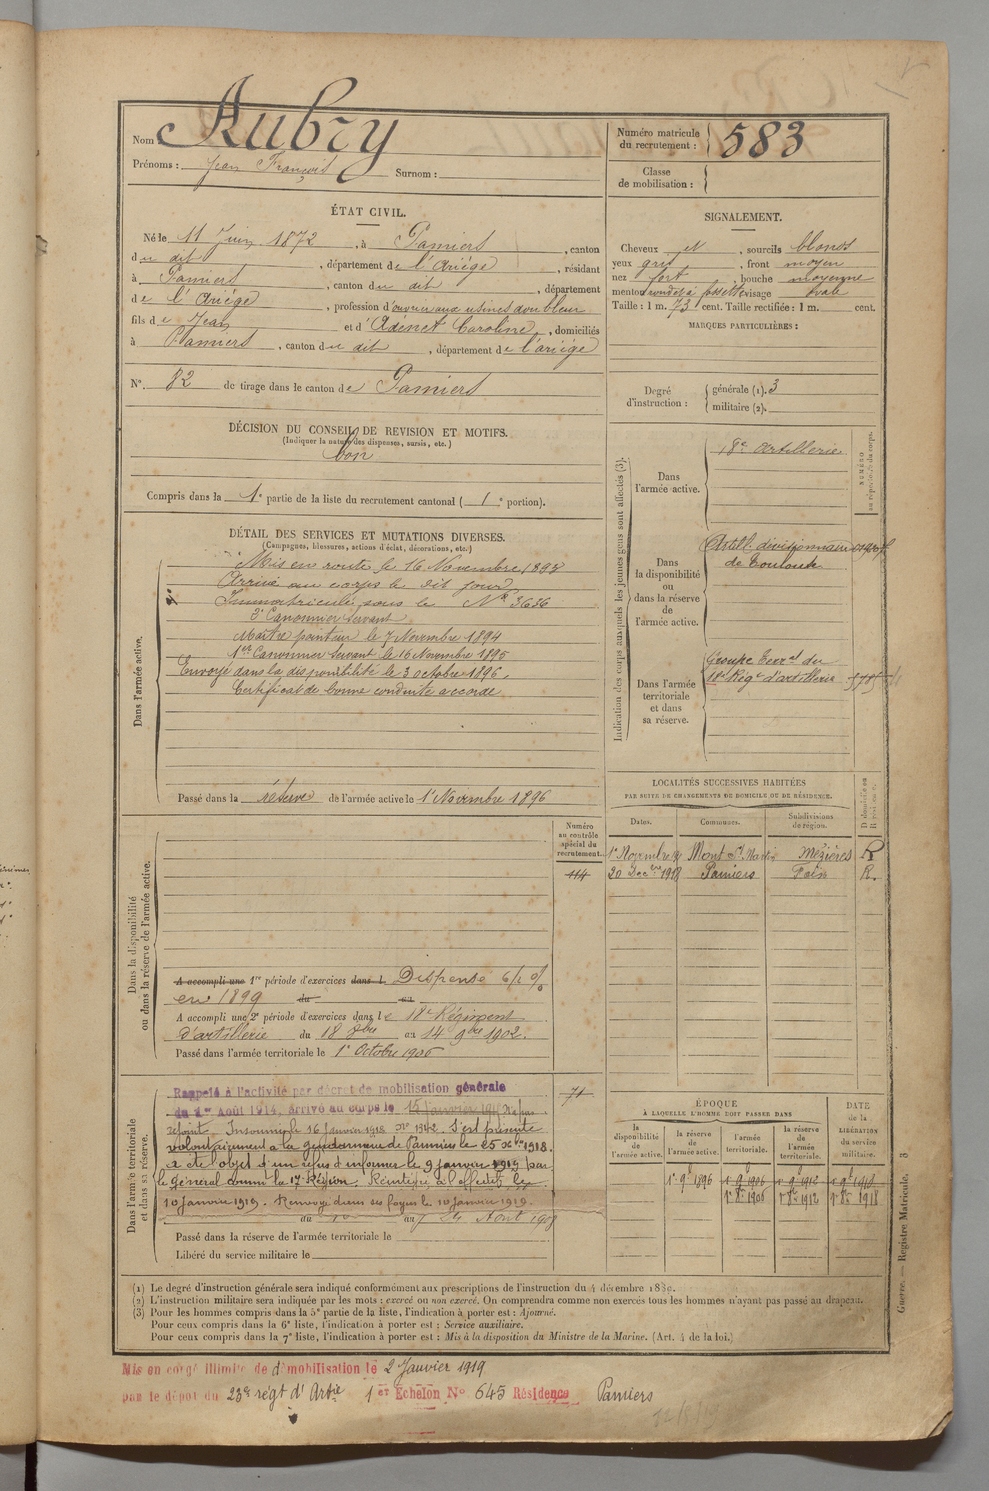 Nom Aubry
Prénoms : Jean François Surnom :
Numéro matricule du recrutement : 583
Classe de mobilisation :
ÉTAT CIVIL.
Né le 11 Juin 1872, à Pamiers, canton
du dit, département de l'Ariège, résidant
à Pamiers, canton du dit, département
de l'Ariège, profession d'ouvrier aux usines doubleur
fils de Jean et d'Adenet Caroline, domiciliés
à Pamiers, canton du dit, département de l'ariège
N° 82 de tirage dans le canton de Pamiers
SIGNALEMENT.
Cheveux et, sourcils blonds
yeux gris, front moyen
nez fort, bouche moyenne
menton rond et à fossette visage ovale
Taille : 1 m. 73 cent. Taille rectifiée : 1 m. cent.
MARQUES PARTICULIÈRES :
Degré d'instruction : générale (1). 3
militaire (2).
DÉCISION DU CONSEIL DE REVISION ET MOTIFS.
(Indiquer la nature des dispenses, sursis, etc.)
bon
Compris dans la 1e partie de la liste du recrutement cantonal ( 1e portion).
DÉTAIL DES SERVICES ET MUTATIONS DIVERSES.
(Campagnes, blessures, actions d'éclat, décorations, etc.)
Dans l'armée active.
Mis en route le 16 Novembre 1893
Arrivé au corps le dit jour
Immatriculé sous le N° 3636
2e Canonnier servant
Maître pointeur le 7 Novembre 1894
1er Canonnier Servant le 16 Novembre 1895
Envoyé dans la disponibilité le 3 octobre 1896.
Certificat de bonne conduite accordé
Passé dans la réserve de l'armée active le 1er Novembre 1896
Indication des corps auxquels les jeunes gens sont affectés (3).
NUMÉRO au répertoire du corps.
Dans l'armée active.
18e Artillerie
Dans la disponibilité ou dans la réserve de l'armée active.
Artill. divisionnaire
de Toulouse
Dans l'armée territoriale et dans sa réserve.
Groupe Terral du
18e Régt d'artillerie
LOCALITÉS SUCCESSIVES HABITÉES
PAR SUITE DE CHANGEMENTS DE DOMICILE OU DE RÉSIDENCE.
Dates. Communes. Subdivisions de région. D domicile ou R résidence.
Mont St Martin Mézières R
20 Decbre 1918 Pamiers Foix R.
Numéro au contrôle spécial du recrutement.
114
Dans la disponibilité ou dans la réserve de l'armée active.
A accompli une 1re période d'exercices dans l Dispense 6/2 %
en 1899 du au
A accompli une 2e période d'exercices dans le 18e Régiment
d'artillerie du 18 8bre au 14 9bre 1902.
Passé dans l'armée territoriale le 1er Octobre 1906
Dans l'armée territoriale et dans sa réserve.
71
Rappelé à l'activité par décret de mobilisation générale
du 1er Août 1914, arrivé au corps le 15 janvier 1918 N'a pas
rejoint. Insoumis le 16 Janvier 1918 S'est présenté
volontairement à la gendarmerie de Pamiers le 25 1918.
a été l'objet d'un refus d'informer le 9 janvier 1919 par
le Général commt la 17e Région.
10 janvier 1919. Renvoyé dans ses foyers le 10 janvier 1919.
du au
Passé dans la réserve de l'armée territoriale le
Libéré du service militaire le
ÉPOQUE
À LAQUELLE L'HOMME DOIT PASSER DANS
DATE de la LIBÉRATION du service militaire.
la disponibilité de l'armée active. la réserve de l'armée active. l'armée territoriale. la réserve de l'armée territoriale.
1er 9bre 1896 1er 9bre 1906 1er 9bre 1912 1er 9bre 1918
1er 8bre 1906 1er 8bre 1912 1er 8bre 1918
(1) Le degré d'instruction générale sera indiqué conformément aux prescriptions de l'instruction du 4 décembre 1889.
(2) L'instruction militaire sera indiquée par les mots : exercé ou non exercé. On comprendra comme non exercés tous les hommes n'ayant pas passé au drapeau.
(3) Pour les hommes compris dans la 5e partie de la liste, l'indication à porter est : Ajourné.
Pour ceux compris dans la 6e liste, l'indication à porter est : Service auxiliaire.
Pour ceux compris dans la 7e liste, l'indication à porter est : Mis à la disposition du Ministre de la Marine. (Art. 4 de la loi.)
Guerre. — Registre Matricule. 3
Mis en congé illimité de démobilisation le 2 Janvier 1919
par le dépôt du 23e régt d'Artie 1er Echelon N° 645 Résidence Pamiers